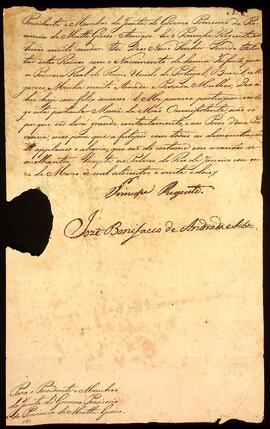 Presidente e Membros da Junta do Governo Provisorio da Pro
vincia de Matto Grosso Amigos. Eu o Principe Regente vos
envio muito saudar. Deos Nosso Senhor
estes Reinos com o Nascimento da huma Infanta que
a Princeza Real do Reino Unido de Portugal, Brasil e Al
garves, Minha muito Amada e Prezada Mulher, deo a
luz hoje com feliz successo: E Me pareceo participar-vos
esta particular Mercê da Mão Omnipotente, não só
para que vos dem grande contentamento, e aos Povos dessa Pro
vincia; mas para que a festejem com todas as demonstrações
de applauso e alegria, que são do costume em occasiões se
melhantes. Escripta no Palacio do Rio de Janeiro em onze
de Março de mil oitocentos e vinte e dous
Principe Regente.
José Bonifacio de Andrada e Silva
Para o Presidente e Membros
da Junta do Governo Provisorio
da Provincia de Matto Grosso.